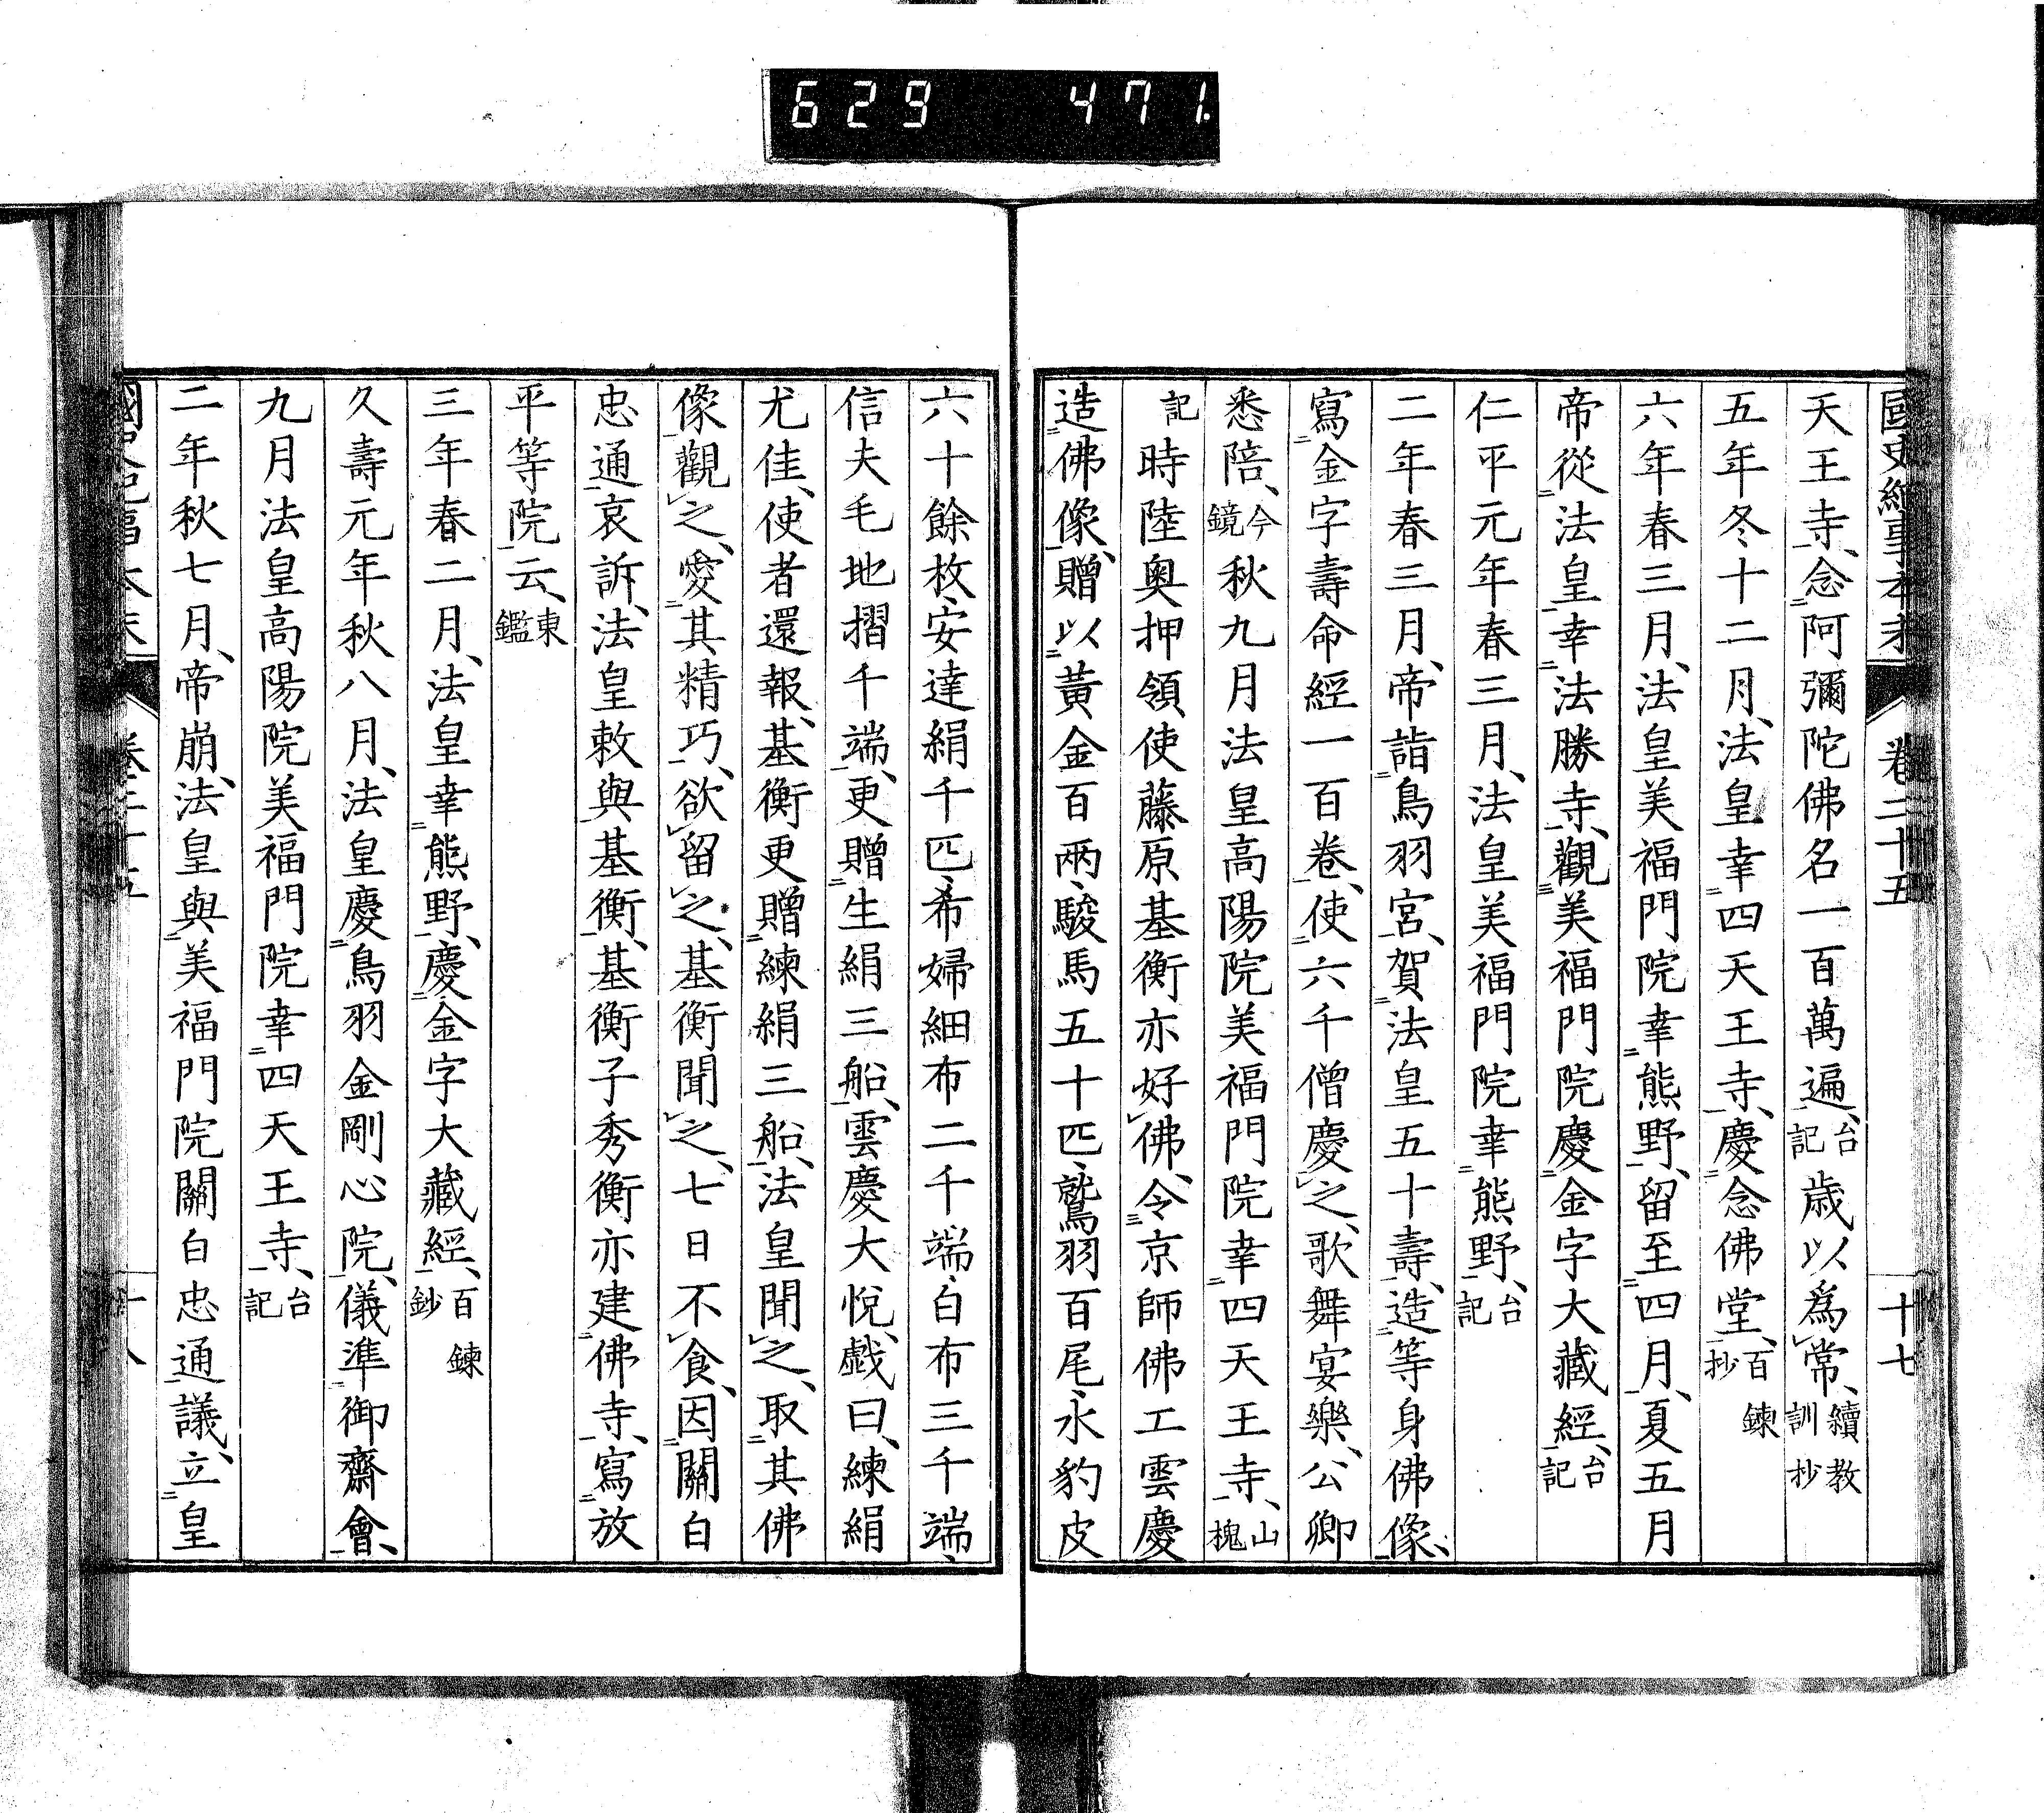 629 471.
國史紀事本末 卷二十五 十七
天王寺、念阿彌陀佛名一百萬遍、台記歲以爲常、續教訓抄
五年冬十二月、法皇幸四天王寺、慶念佛堂、百鍊抄
六年春三月、法皇美福門院幸熊野、留至四月、夏五月
帝從法皇幸法勝寺、觀美福門院慶金字大藏經、台記
仁平元年春三月、法皇美福門院幸熊野、台記
二年春三月、帝詣鳥羽宮、賀法皇五十壽、造等身佛像、
寫金字壽命經一百卷、使六千僧慶之、歌舞宴樂、公卿
悉陪、今鏡秋九月法皇高陽院美福門院幸四天王寺、山槐
記時陸奧押領使藤原基衡亦好佛、令京師佛工雲慶
造佛像、贈以黃金百兩、駿馬五十匹、鷲羽百尾、水豹皮
六十餘枚、安達絹千匹、希婦細布二千端、白布三千端、
信夫毛地摺千端、更贈生絹三船、雲慶大悅、戲曰、練絹
尤佳、使者還報、基衡更贈練絹三船、法皇聞之、取其佛
像觀之、愛其精巧、欲留之、基衡聞之、七日不食、因關白
忠通哀訴、法皇敕與基衡、基衡子秀衡亦建佛寺、寫放
平等院云、東鑑
三年春二月、法皇幸熊野、慶金字大藏經、百鍊鈔
久壽元年秋八月、法皇慶鳥羽金剛心院、儀準御齋會、
九月法皇高陽院美福門院幸四天王寺、台記
二年秋七月、帝崩、法皇與美福門院關白忠通議、立皇
國史紀事本末 卷二十五 十八